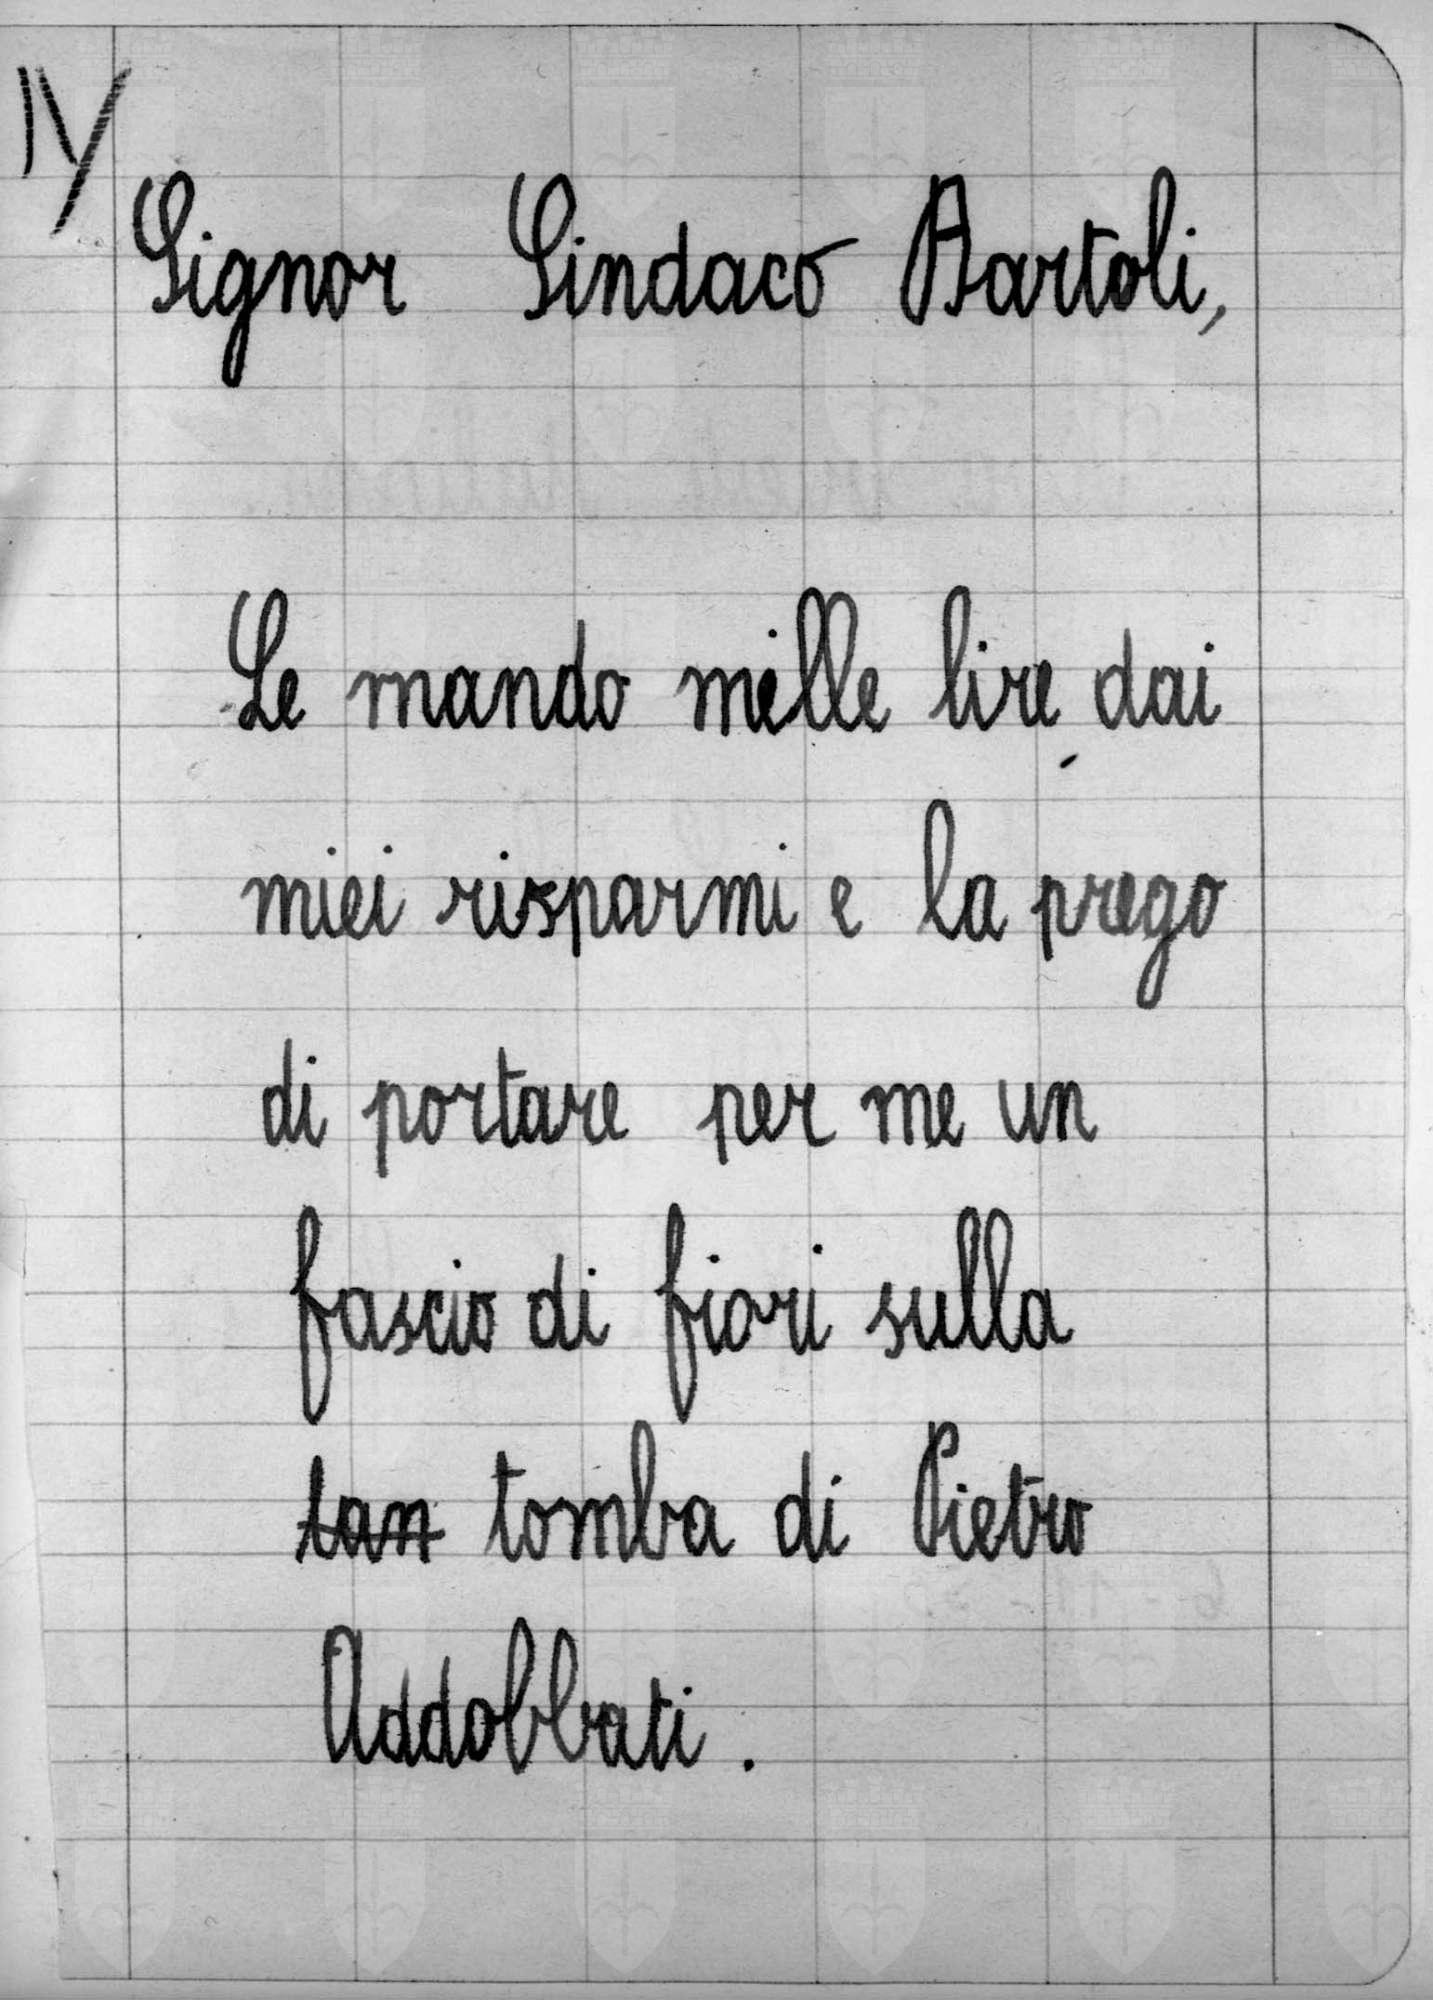 IV
Signor Sindaco Bartoli,
Le mando mille lire dai
miei risparmi e la prego
di portare per me un
fascio di fiori sulla
tan tomba di Pietro
Addobbati.